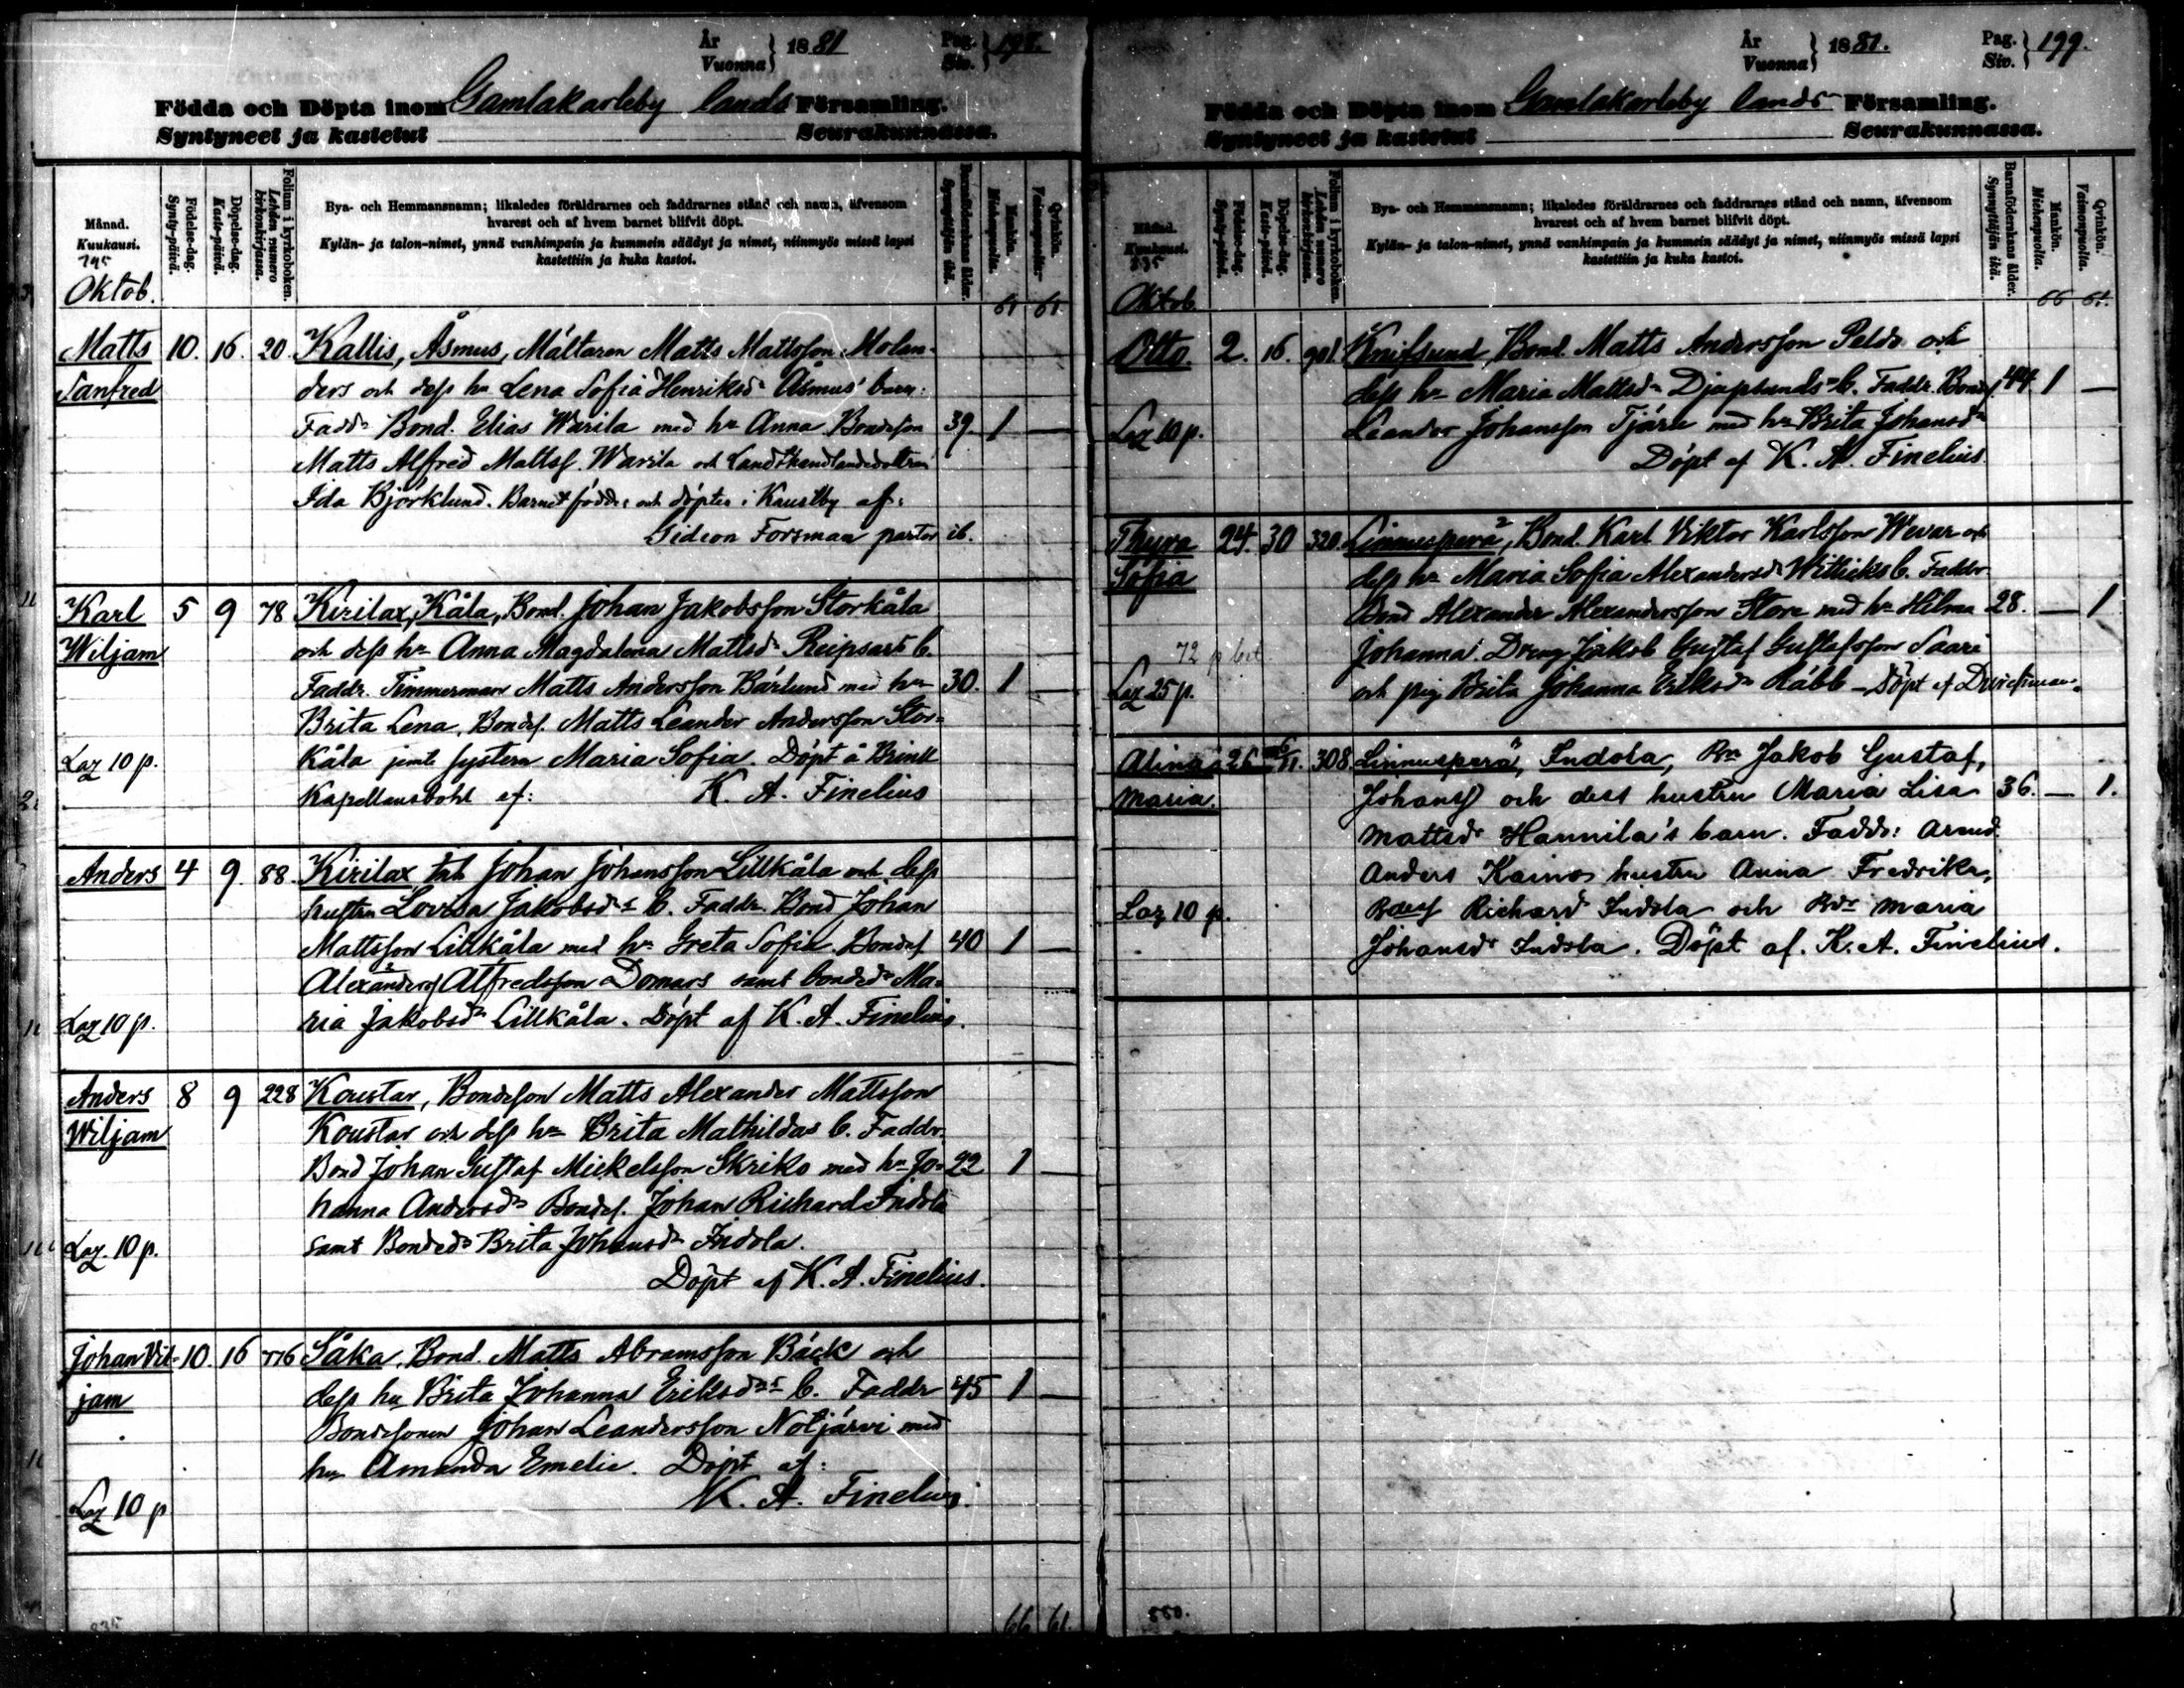 År
Vuonna } 1881
Pag.
Siv. } 198.
Födda och Döpta inom Gamlakarleby lands Församling.
Syntyneet ja kastetut Seurakunnassa.
Månad.
Kuukausi.
Födelse-dag.
Synty-päivä.
Döpelse-dag.
Kaste-päivä.
Folium i kyrkoboken.
Lehden numero kirkonkirjassa.
Bya- och Hemmansnamn; likaledes föräldrarnes och faddrarnes stånd och namn, äfvensom
hvarest och af hvem barnet blifvit döpt.
Kylän- ja talon-nimet, ynnä vanhimpain ja kummein säädyt ja nimet, niinmyös missä lapsi
kastettiin ja kuka kastoi.
Barnaföderskans ålder.
Synnyttäjän ikä.
Mankön.
Miehenpuolta.
Qvinkön.
Vaimonpuolta.
795
Oktob. 61 61
Matts 10. 16. 20. Kallis, Åsmus, Mältaren Matts Mattsson Molan-
Sanfred ders och dess hu Lena Sofia Henriksdr Åsmus' barn.
Faddr Bond. Elias Warila med hu Anna Bondeson 39. 1 —
Matts Alfred Mattss. Warila och Landthandlandedottren
Ida Björklund. Barnet föddes och döptes i Kaustby af:
Gideon Forsman pastor ib.
Karl 5 9 78 Kirilax, Kåla, Bond. Johan Jakobsson Storkåla
Wiljam och dess hu Anna Magdalena Mattsdr Reipsars b.
Faddr. Timmerman Matts Andersson Bärlund med hu 30. 1 —
Brita Lena, Bondes. Matts Leander Andersson Stor-
Laz 10 p. kåla jemte systern Maria Sofia. Döpt å Brink
Kapellansbohl af: K. A. Finelius
Anders 4 9. 88. Kirilax Johan Johansson Lillkåla och dess
hustru Lovisa Jakobsdrs b. Faddr. Bond Johan
Mattsson Lillkåla med hu Greta Sofia. Bondes 40 1 —
Alexander Alfredsson Domars samt bonded. Ma-
Laz 10 p. ria Jakobsdr Lillkåla. Döpt af K. A. Finelius.
Anders 8 9 228 Koustar, Bondeson Matts Alexander Mattsson
Wiljam Koustar och dess hu Brita Mathildas b. Faddr.
Bond Johan Gustaf Mickelsson Skriko med hu Jo- 22 1 —
hanna Andersdr Bondes. Johan Richard Indola
Laz. 10 p. samt Bonded. Brita Johansdr Indola.
Döpt af K. A. Finelius.
Johan Vil- 10 16 776 Såka, Bond. Matts Abramsson Bäck och
jam dess hu Brita Johanna Eriksdrs b. Faddr 45 1 —
Bondesonen Johan Leandersson Notjärvi med
hu Amanda Emelie. Döpt af:
Laz 10 p K. A. Finelius.
835 66 61.
År
Vuonna } 1881.
Pag.
Siv. } 199.
Födda och Döpta inom Gamlakarleby lands Församling.
Syntyneet ja kastetut Seurakunnassa.
Månad.
Kuukausi.
Födelse-dag.
Synty-päivä.
Döpelse-dag.
Kaste-päivä.
Folium i kyrkoboken.
Lehden numero kirkonkirjassa.
Bya- och Hemmansnamn; likaledes föräldrarnes och faddrarnes stånd och namn, äfvensom
hvarest och af hvem barnet blifvit döpt.
Kylän- ja talon-nimet, ynnä vanhimpain ja kummein säädyt ja nimet, niinmyös missä lapsi
kastettiin ja kuka kastoi.
Barnaföderskans ålder.
Synnyttäjän ikä.
Mankön.
Miehenpuolta.
Qvinkön.
Vaimonpuolta.
835
Oktob. 66 61.
Otto. 2. 16. 901. Knifsund, Bond. Matts Andersson Peldo och
dess hu Maria Mattsdr Djupsunds b. Faddr. Bond. 44. 1 —
Laz 10 p. Leander Johansson Tjäru med hu Brita Johansdr
Döpt af K. A. Finelius
Thyra 24. 30 320. Linnusperä, Bond. Karl Viktor Karlsson Wevar och
Sofia dess hu Maria Sofia Alexandersdr Witticks b. Faddr
Bond Alexander Alexandersson Store med hu Hilma 28. — 1
72 p Johanna. Dreng Jakob Gustaf Gustafsson Saari
Laz 25 p. och pig. Brita Johanna Eriksdr Räbb - Döpt af
Alina 26 6/11. 308. Linnusperä, Indola, Jakob Gustaf,
Maria. Johanss och dess hustru Maria Lisa 36. — 1.
Mattsdr Hannila's barn. Faddr:
Anders Kainos hustru Anna Fredrika,
Laz 10 p. Richard Indola och Maria
Johansdr Indola. Döpt af. K. A. Finelius.